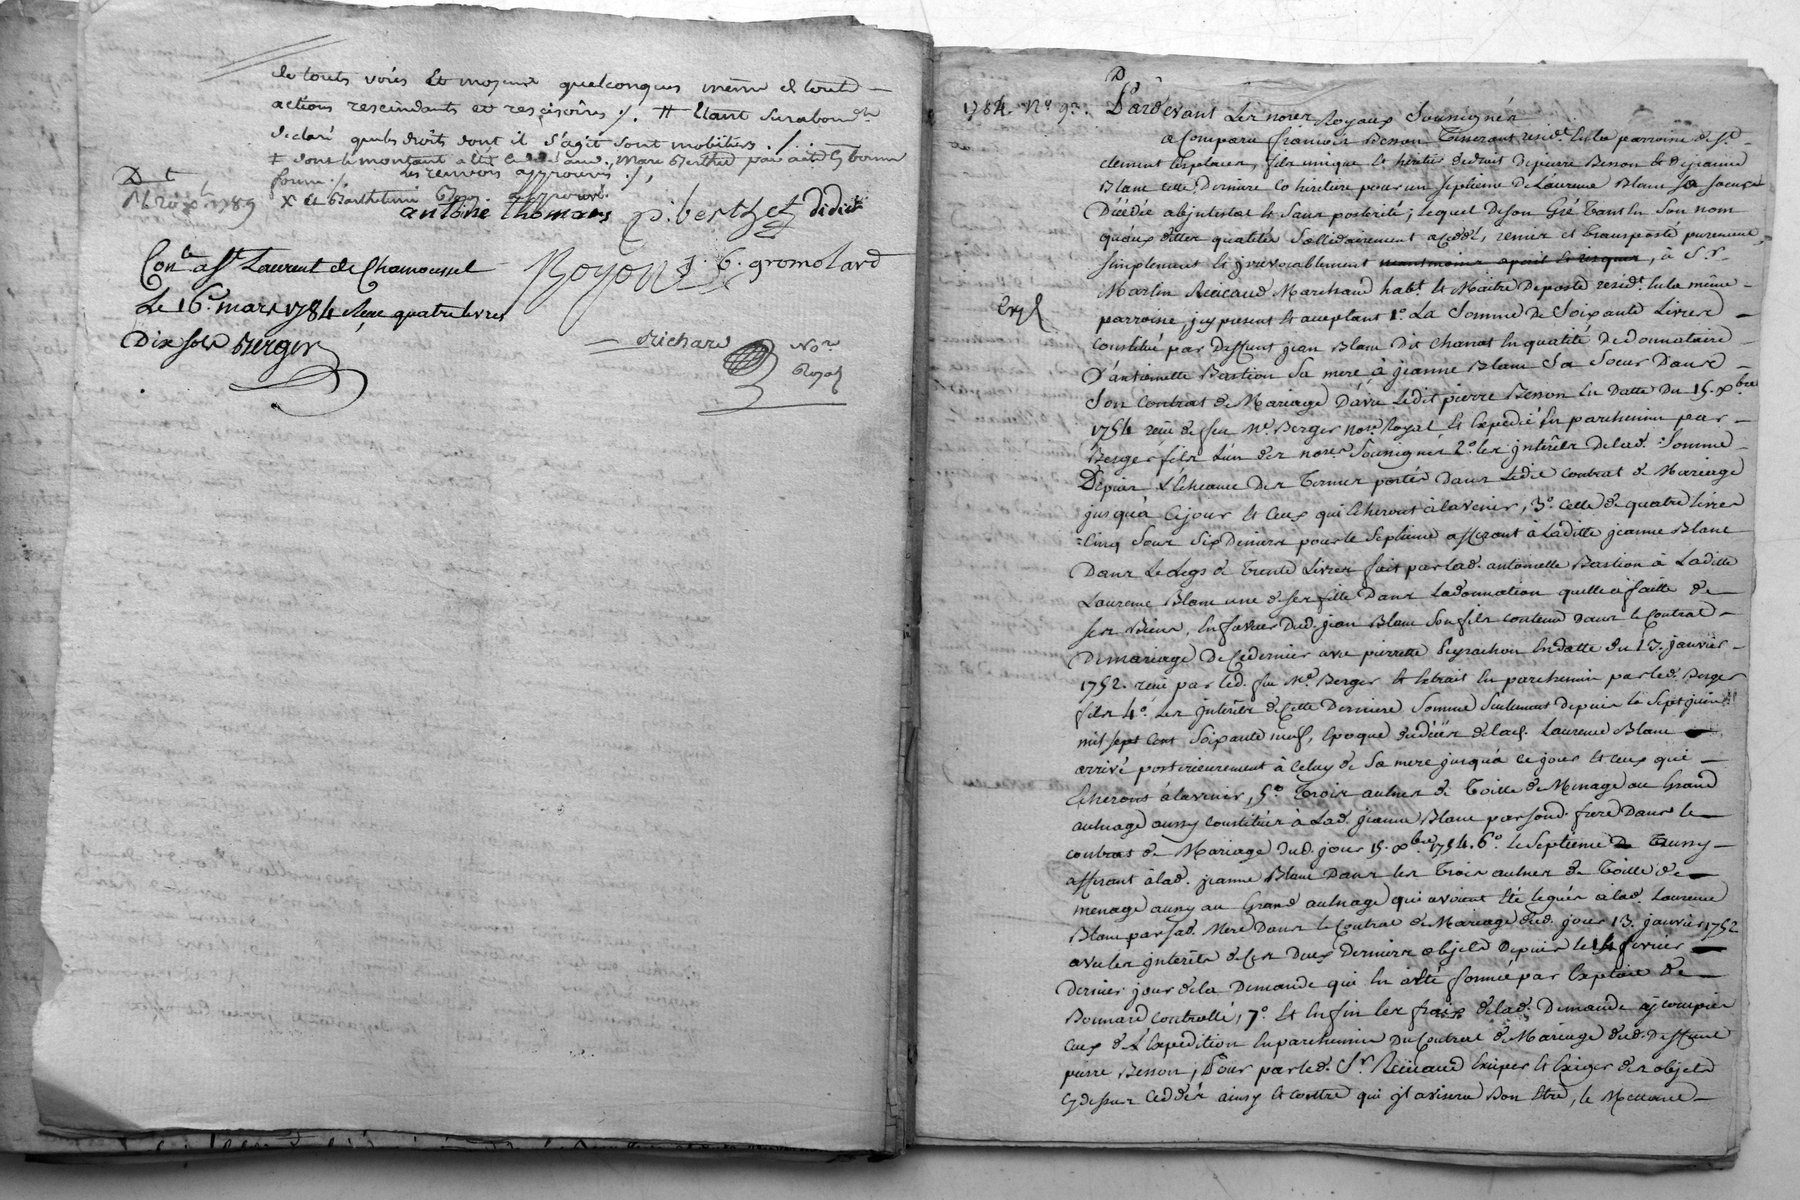 de touts voies et moyens quelconques même de touts
actions rescindants et rescisoires ./. # Etant surabond.
declaré que les droits dont il s'agit sont mobiliers ./.
forme ./. Les renvois approuvés ./.
D t
1789
X et Barthelmi approuvé
antoine thomas p. berthet didier
Royon j. b. gromolard
Con.le a St Laurent de Chamousset
Le 16e mars 1784 Reçu quatre livres
Dix sols Berger
Richard No.re
Royal
1784. No 9.
Pardevant Les no.res Royaux Soussignés
a Comparu françois Besson Tisserant resid.t En la parroisse de St
clement les places, fils unique et heritier de droit de pierre Besson et de jeanne
Blanc cette Derniere Co heritiere pour un septieme de Laurence Blanc Sa soeur
Décédée abjntestat et sans posterité; lequel De son Gré Tant En Son nom
qu'aux dittes qualités Sollidairement a cedé, remis et transporté purement,
simplement et jrrevocablement neantmoins a peril et risques, à Sr
Martin Marchand hab.t et Maître De poste resid.t En la même
parroisse, jcy present et acceptant 1o. La Somme De Soixante Livres
Constitué par Deffunt jean Blanc Dit En qualité De donnataire
D'antoinette Bastion Sa mere à jeanne Blanc Sa Soeur Dans
Son contrat de Mariage D'avec Ledit pierre Besson En Datte Du 15. xbre
1754 reçu de feu Me. Berger no.re Royal et Expedié En parchemin par
Berger fils L'un des nores Soussignés 2o. les jnterêts De lad. Somme
Depuis L'Echeance Des Termes portés Dans Ledit contrat de Mariage
jusqu'à Cejour et Ceux qui Echeront à l'avenir, 3o. Celle de quatre livres
Cinq Sous Six Deniers pour le Septieme afferant à Laditte jeanne Blanc
Dans Le Legs de Trente Livres fait par lad. antoinette Bastion à Laditte
Laurence Blanc une de ses filles Dans La donnation qu'elle a faitte de
ses Biens, En faveur Dud. jean Blanc Son fils contenu Dans le Contrat
De mariage De Ce dernier avec pierrette Peyrachon En datte du 13. janvier
1752. reçu par led. feu Me. Berger et Extrait En parchemin par led. Berger
fils 4o. Les jnterêts de Cette Derniere Somme Seulement Depuis le Sept juin
mil sept Cent Soixante neuf, Epoque du déces de lad. Laurence Blanc
arrivé posterieurement à Celuy de Sa mere jusqu'à ce jour et Ceux qui
Echerons à l'avenir, 5o. Trois aulnes de Toille de Menage au Grand
aulnage aussy constitués à Lad. jeanne Blanc par sond. frere Dans le
contrat de Mariage dud. jour 15. xbre 1754. 6o. le Septieme aussy
afferant à lad. jeanne Blanc Dans les Trois aulnes de Toille de
menage aussy au Grand aulnage qui avoient Eté legués à lad. Laurence
Blanc par sad. Mere Dans le Contrat de Mariage dud. jour 13. janvier 1752
avec les jnterêts de Ces Deux Derniers objets Depuis le 14 fevrier
Dernier jour de la Demande qui En a été formée par Exploit de
Bonnard controllé, 7o. Et Enfin les fraix de lad. Demande y compris
Ceux de L'Expedition En parchemin Du Contrat de Mariage dud. Deffunt
pierre Besson, Pour par led. Sr. Exiper et Exiger des objets
cy dessus Ceddés ainsy et contre qui jl avisera Bon Etre, le Mettant